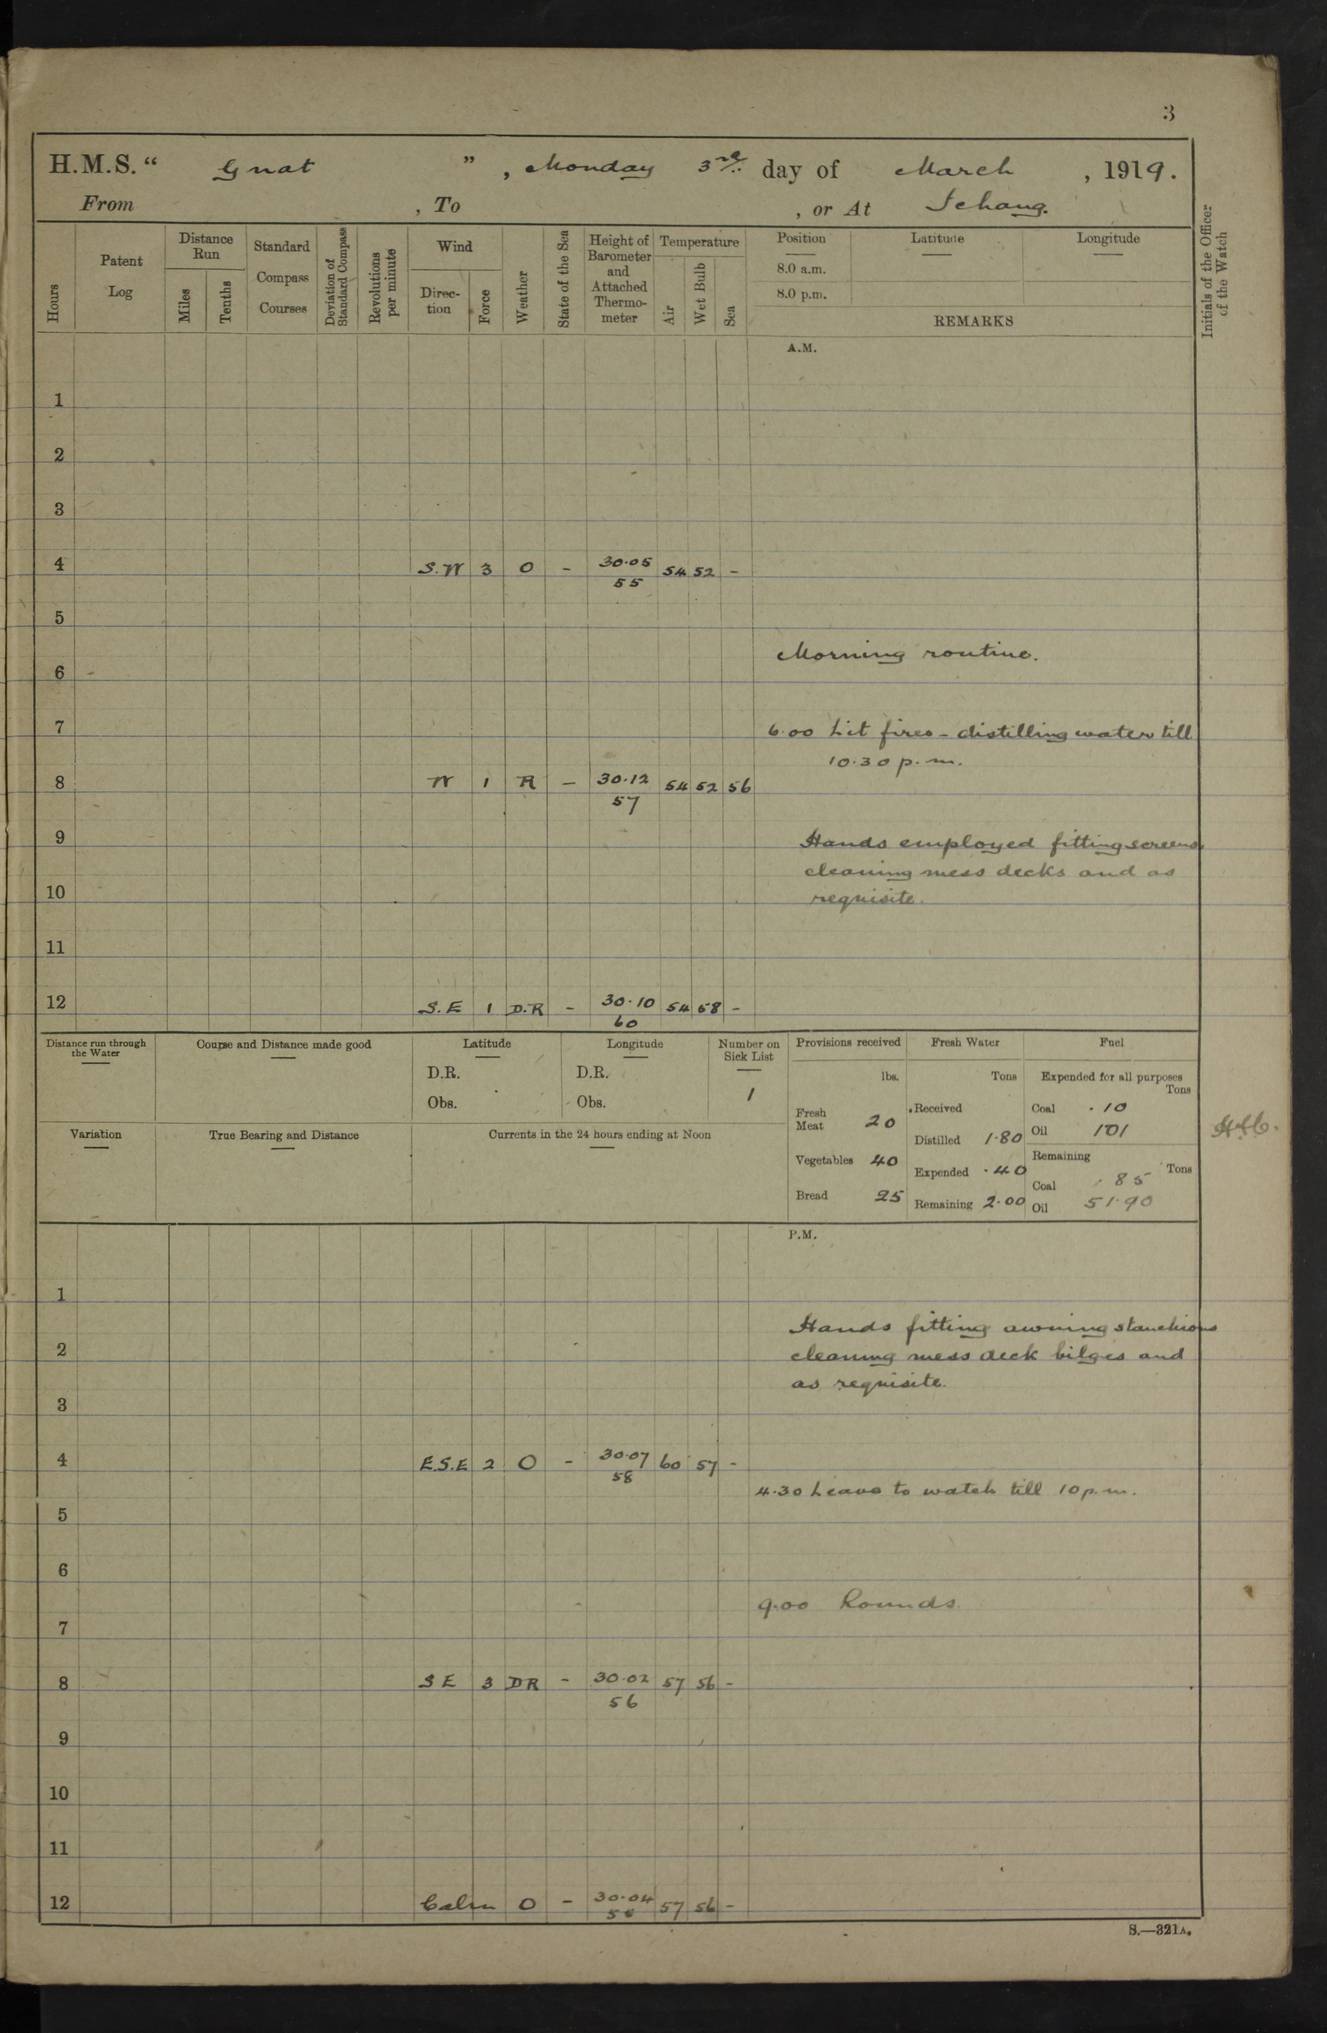 3
H.M.S. “ Gnat ” , Monday 3rd day of March , 1919.
From , To , or At Ichang.
Hours
Patent Log
Distance Run
Miles
Tenths
Standard Compass Courses
Deviation of Standard Compass
Revolutions per minute
Wind
Direction
Force
Weather
State of the Sea
Height of Barometer and Attached Thermometer
Temperature
Air
Wet Bulb
Sea
Position Latitude Longitude
8.0 a.m.
8.0 p.m.
REMARKS
Initials of the Officer of the Watch
A.M.
1
2
3
4 S.W 3 O – 30.05 54 52 –
55
5
Morning routine.
6
7 6.00 Lit fires – distilling water till
10.30 p.m.
8 W 1 R – 30.12 54 52 56
57
9 Hands employed fitting screens
cleaning mess decks and as
10 requisite.
11
12 S.E 1 D.R – 30.10 54 58 –
60
Distance run through the Water
Course and Distance made good
Latitude
D.R.
Obs.
Longitude
D.R.
Obs.
Number on Sick List
1
Variation
True Bearing and Distance
Currents in the 24 hours ending at Noon
Provisions received
lbs.
Fresh Meat 20
Vegetables 40
Bread 25
Fresh Water
Tons
Received
Distilled 1.80
Expended .40
Remaining 2.00
Fuel
Expended for all purposes
Tons
Coal .10
Oil 1.01
Remaining
Tons
Coal .85
Oil 51.90
P.M.
1
Hands fitting awning stanchions
2 cleaning mess deck bilges and
as requisite.
3
4 E.S.E 2 O – 30.07 60 57 –
58
4.30 Leave to watch till 10 p.m.
5
6
9.00 Rounds.
7
8 S E 3 DR – 30.02 57 56 –
56
9
10
11
12 Calm O – 30.04 57 56 –
S.—321A.